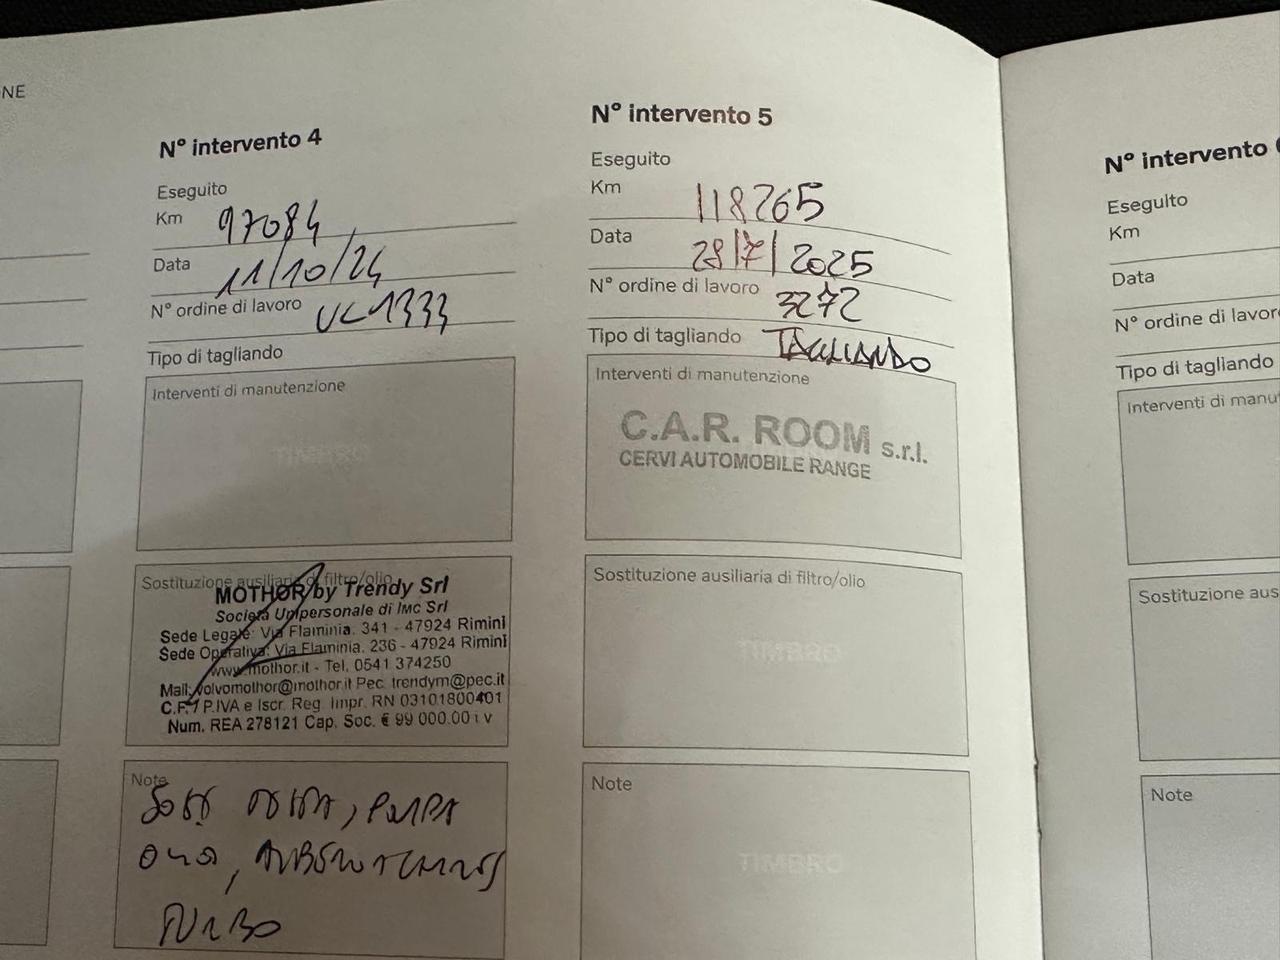 NE
N° intervento 4
Eseguito
Km 97084
Data 11/10/24
N° ordine di lavoro UC1333
Tipo di tagliando
Interventi di manutenzione
TIMBRO
Sostituzione ausiliaria di filtro/olio
MOTHOR by Trendy Srl
Società Unipersonale di IMC Srl
Sede Legale: Via Flaminia. 341 - 47924 Rimini
Sede Operativa: Via Flaminia. 236 - 47924 Rimini
www.mothor.it - Tel. 0541 374250
Mail: volvomothor@mothor.it Pec. trendym@pec.it
C.F. / P.IVA e Iscr. Reg. Impr. RN 03101800401
Num. REA 278121 Cap. Soc. € 99 000.00 i v
Note
olio,
turbo
N° intervento 5
Eseguito
Km 118265
Data 28/7/2025
N° ordine di lavoro 3272
Tipo di tagliando TAGLIANDO
Interventi di manutenzione
C.A.R. ROOM s.r.l.
CERVI AUTOMOBILE RANGE
Sostituzione ausiliaria di filtro/olio
TIMBRO
Note
TIMBRO
N° intervento
Eseguito
Km
Data
N° ordine di lavor
Tipo di tagliando
Interventi di manu
Sostituzione aus
Note